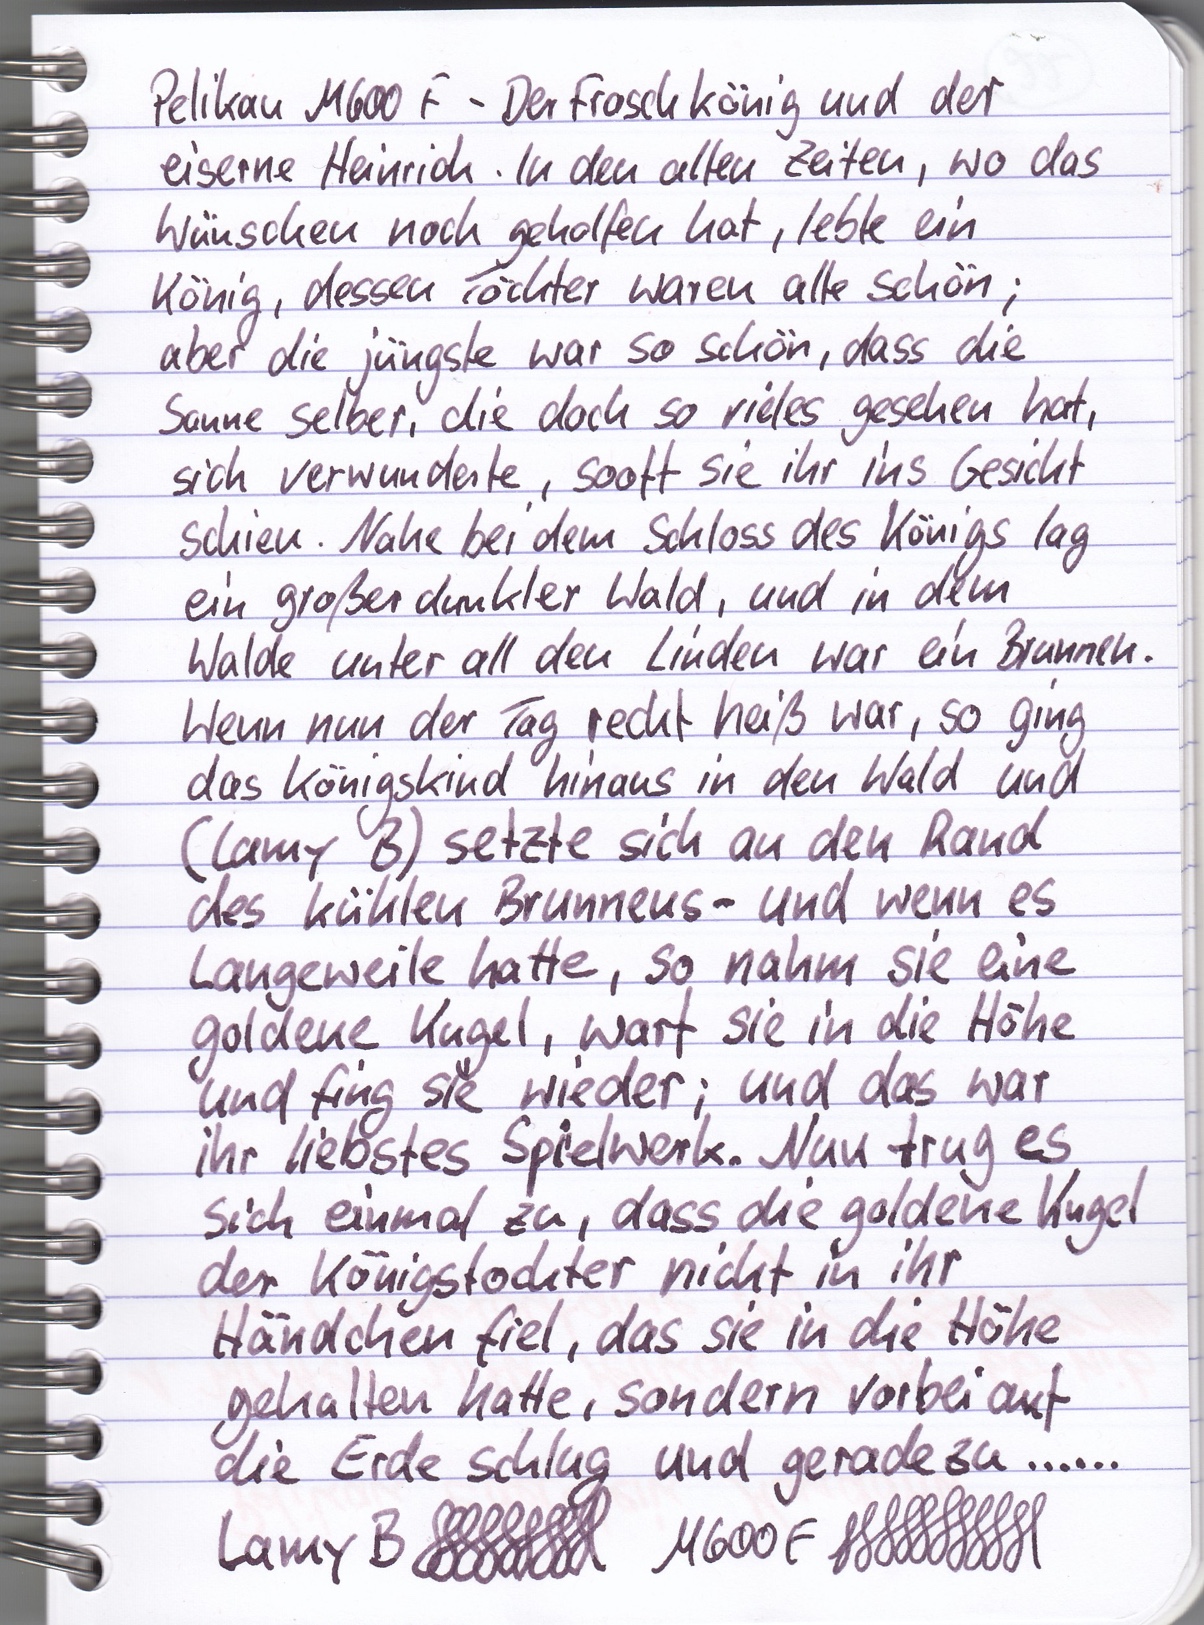 Pelikan M600 F - Der Froschkönig und der
eiserne Heinrich. In den alten Zeiten, wo das
Wünschen noch geholfen hat, lebte ein
König, dessen Töchter waren alle schön;
aber die jüngste war so schön, dass die
Sonne selber, die doch so vieles gesehen hat,
sich verwunderte, sooft sie ihr ins Gesicht
schien. Nahe bei dem Schloss des Königs lag
ein großer dunkler Wald, und in dem
Walde unter all den Linden war ein Brunnen.
Wenn nun der Tag recht heiß war, so ging
das Königskind hinaus in den Wald und
(Lamy B) setzte sich an den Rand
des kühlen Brunnens - und wenn es
Langeweile hatte, so nahm sie eine
goldene Kugel, warf sie in die Höhe
und fing sie wieder; und das war
ihr liebstes Spielwerk. Nun trug es
sich einmal zu, dass die goldene Kugel
der Königstochter nicht in ihr
Händchen fiel, das sie in die Höhe
gehalten hatte, sondern vorbei auf
die Erde schlug und geradezu ......
Lamy B M600 F